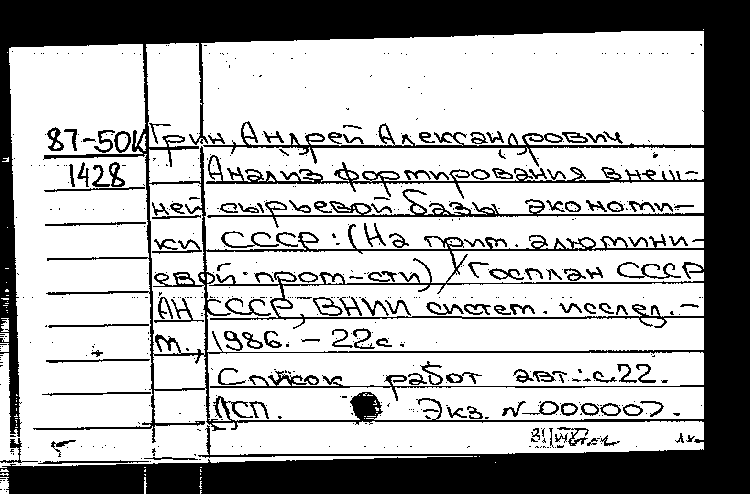 87-50К
1428
Грин, Андрей Александрович.
Анализ формирования внеш-
ней сырьевой базы экономи-
ки СССР: (На прим. алюмини-
евой пром-сти) / Госплан СССР
АН СССР, ВНИИ систем. исслед. -
м., 1986. - 22с.
Список работ авт.: с.22.
ДСП. Экз. N 000007.